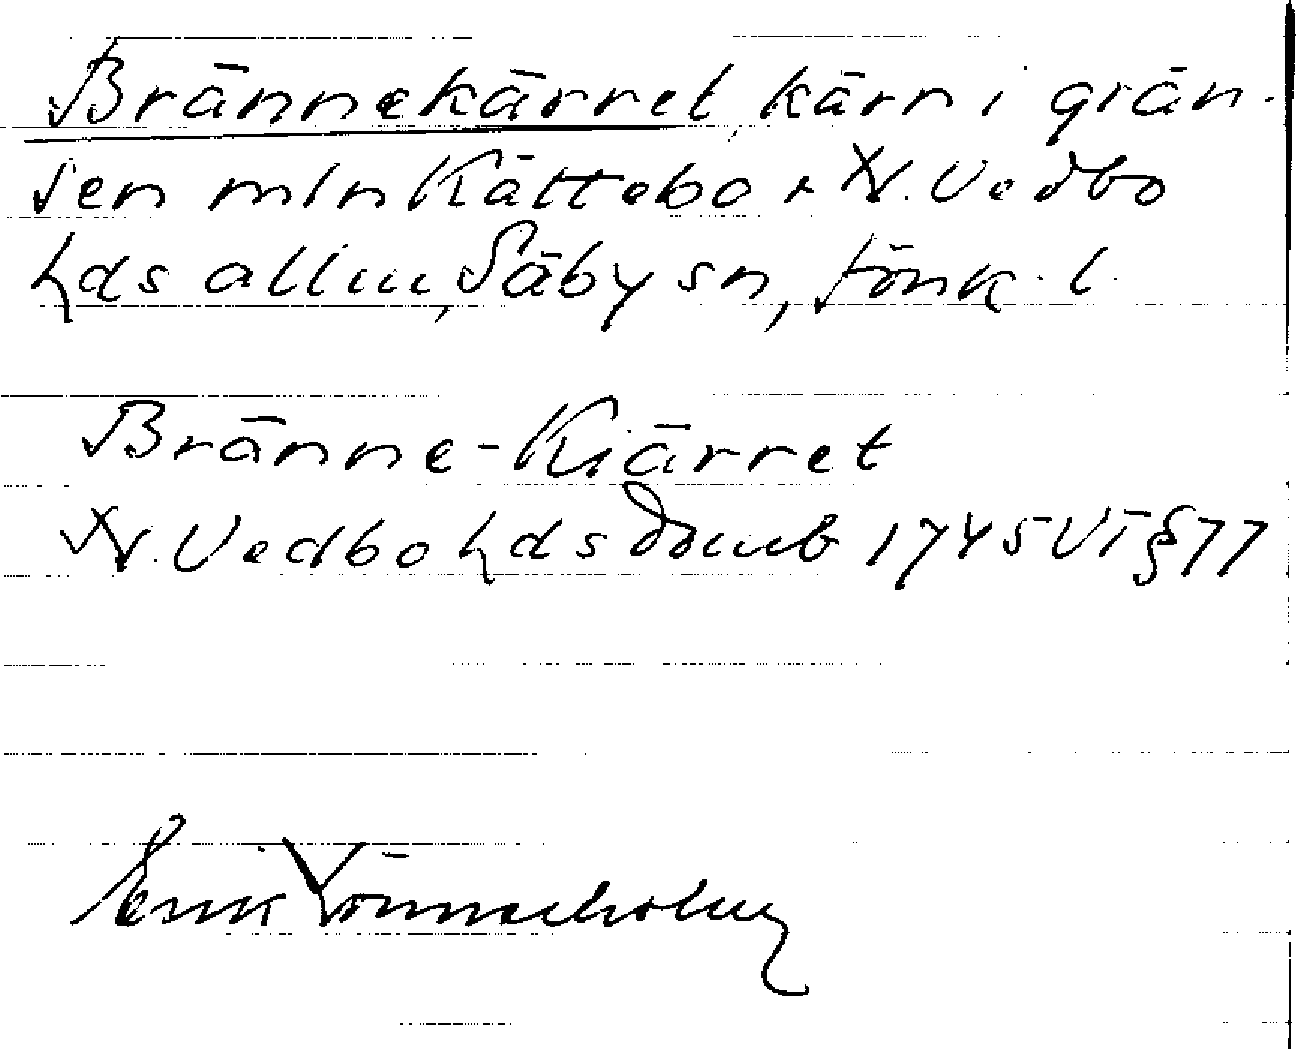 Brännekärret, kärr i grän-
sen mln Kättebo & N. Vedbo
hds allm, Säby sn, Jönk. l.
Bränne-Kiärret
N. Vedbo hds domb 1745 VT § 77
Erik